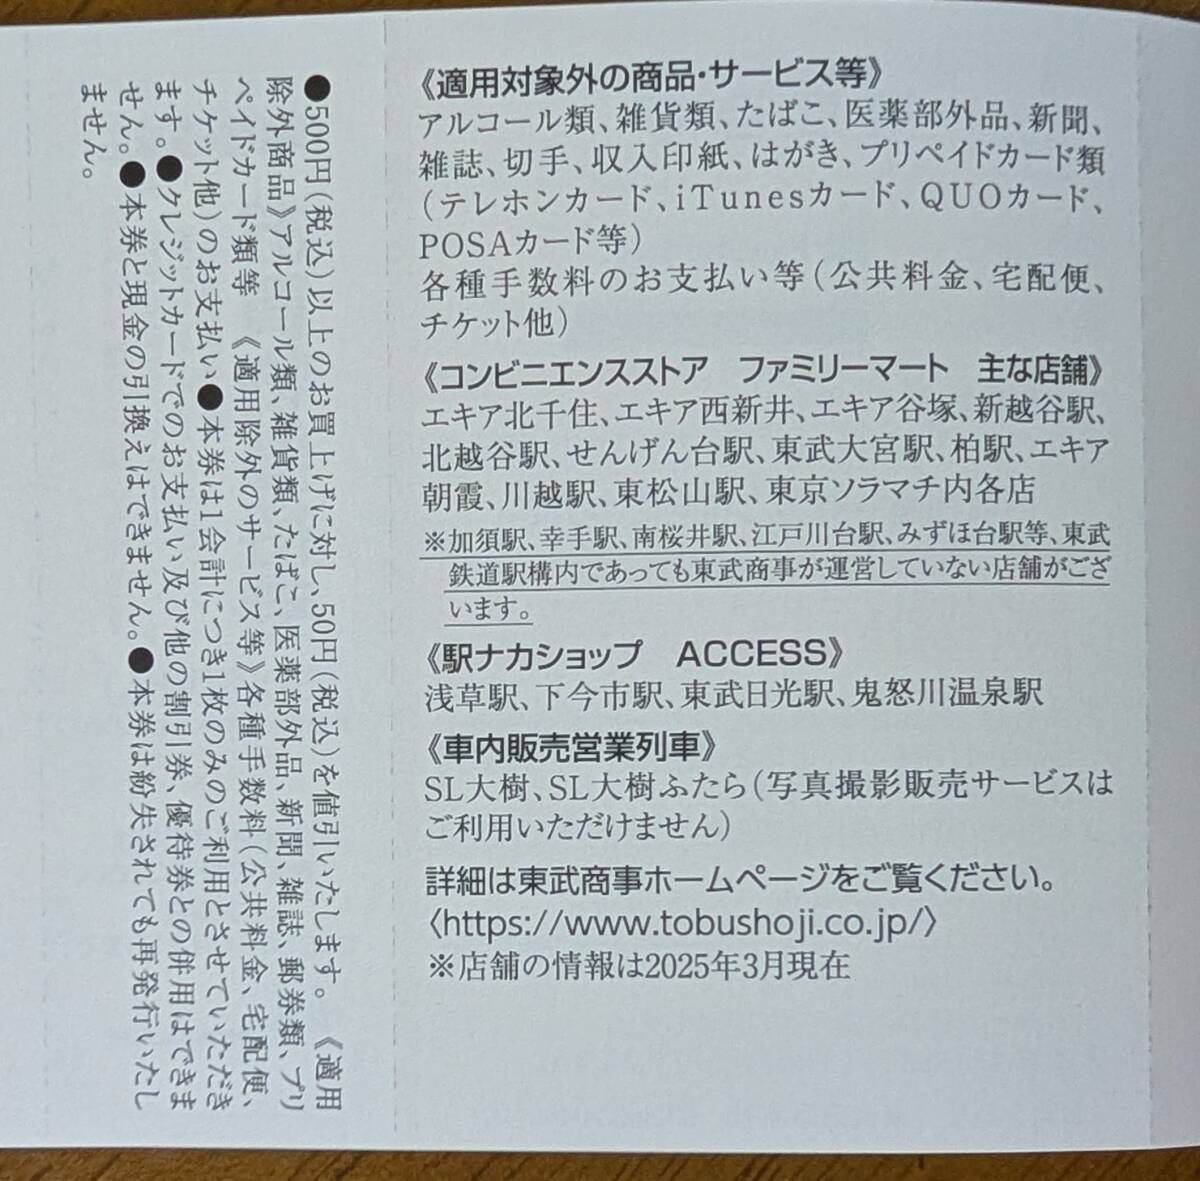 《適用対象外の商品・サービス等》
アルコール類、雑貨類、たばこ、医薬部外品、新聞、
雑誌、切手、収入印紙、はがき、プリペイドカード類
（テレホンカード、iTunesカード、QUOカード、
POSAカード等）
各種手数料のお支払い等（公共料金、宅配便、
チケット他）
《コンビニエンスストア　ファミリーマート　主な店舗》
エキア北千住、エキア西新井、エキア谷塚、新越谷駅、
北越谷駅、せんげん台駅、東武大宮駅、柏駅、エキア
朝霞、川越駅、東松山駅、東京ソラマチ内各店
※加須駅、幸手駅、南桜井駅、江戸川台駅、みずほ台駅等、東武
鉄道駅構内であっても東武商事が運営していない店舗がござ
います。
《駅ナカショップ　ACCESS》
浅草駅、下今市駅、東武日光駅、鬼怒川温泉駅
《車内販売営業列車》
SL大樹、SL大樹ふたら（写真撮影販売サービスは
ご利用いただけません）
詳細は東武商事ホームページをご覧ください。
〈https://www.tobushoji.co.jp/〉
※店舗の情報は2025年3月現在
●500円（税込）以上のお買上げに対し、50円（税込）を値引いたします。《適用
除外商品》アルコール類、雑貨類、たばこ、医薬部外品、新聞、雑誌、郵券類、プリ
ペイドカード類等　《適用除外のサービス等》各種手数料（公共料金、宅配便、
チケット他）のお支払い●本券は1会計につき1枚のみのご利用とさせていただき
ます。●クレジットカードでのお支払い及び他の割引券、優待券との併用はできま
せん。●本券と現金の引換えはできません。●本券は紛失されても再発行いたし
ません。